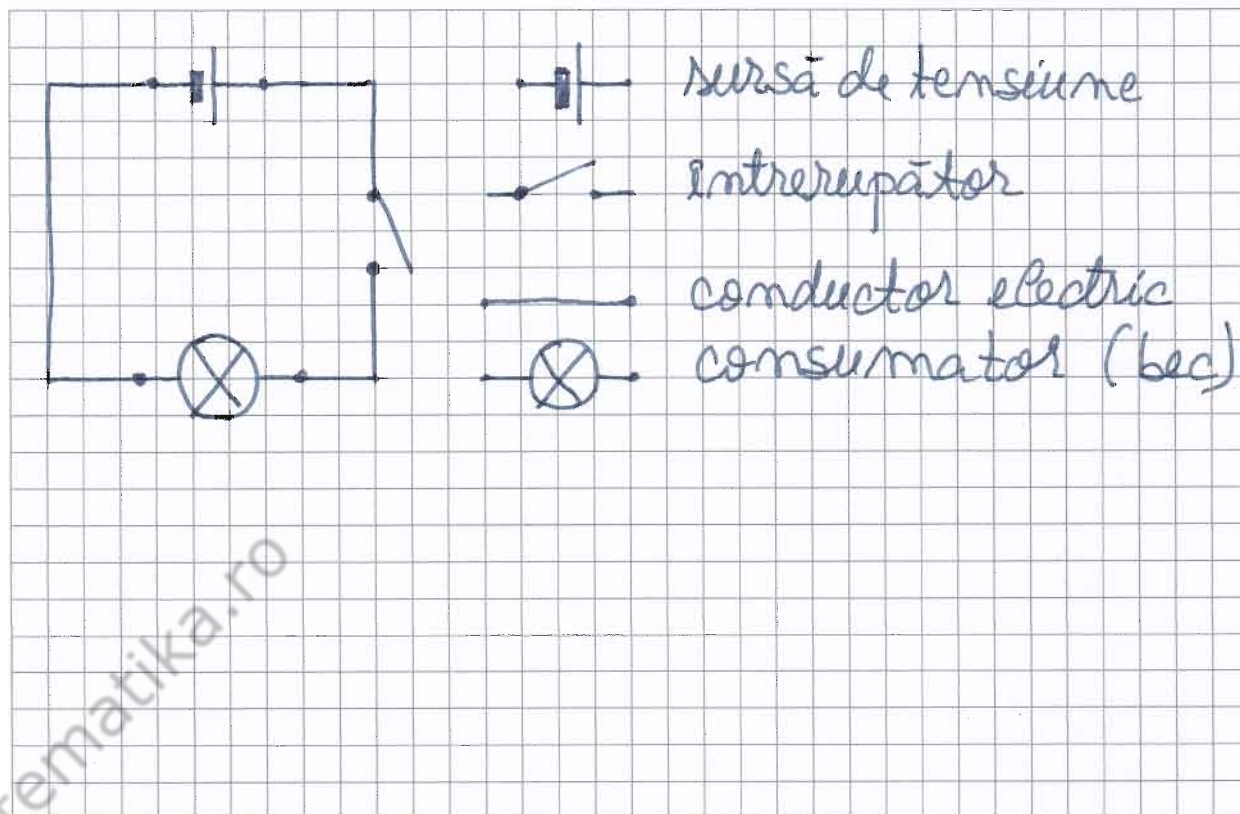 sursă de tensiune
întrerupător
conductor electric
consumator (bec)
ematika.ro